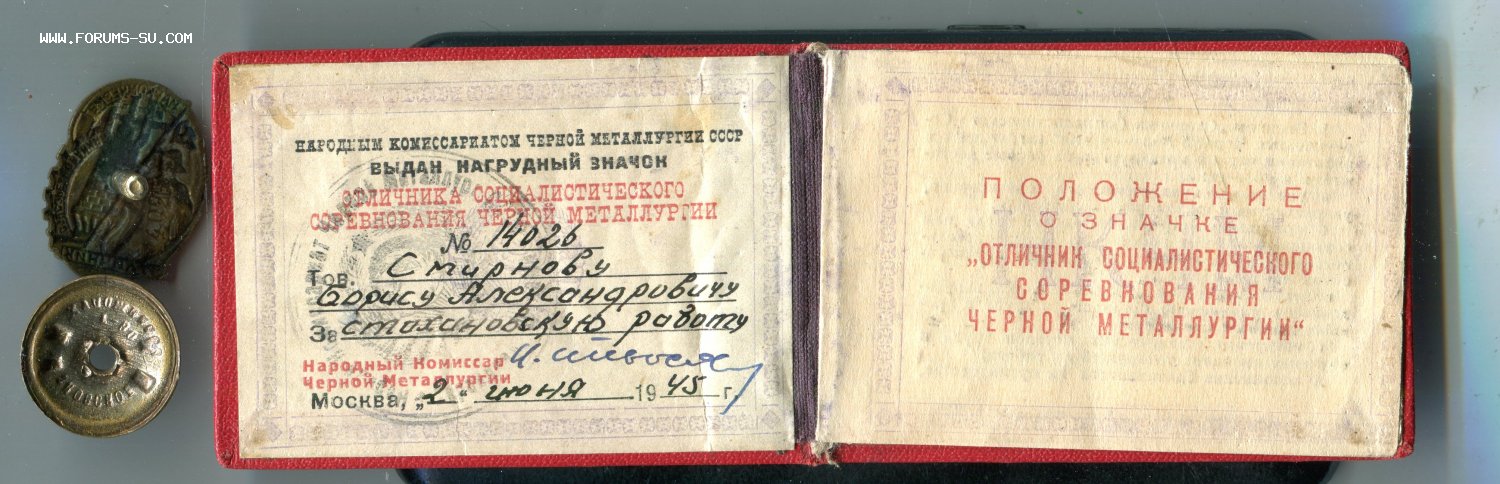 WWW.FORUMS-SU.COM
НАРОДНЫМ КОМИССАРИАТОМ ЧЕРНОЙ МЕТАЛЛУРГИИ СССР
ВЫДАН НАГРУДНЫЙ ЗНАЧОК
ОТЛИЧНИКА СОЦИАЛИСТИЧЕСКОГО
СОРЕВНОВАНИЯ ЧЕРНОЙ МЕТАЛЛУРГИИ
№ 14026
Тов. Смирнову
Борису Александровичу
За стахановскую работу
Народный Комиссар
Черной Металлургии
Москва, „2" июня 1945 г.
ПОЛОЖЕНИЕ
О ЗНАЧКЕ
„ОТЛИЧНИК СОЦИАЛИСТИЧЕСКОГО
СОРЕВНОВАНИЯ
ЧЕРНОЙ МЕТАЛЛУРГИИ"